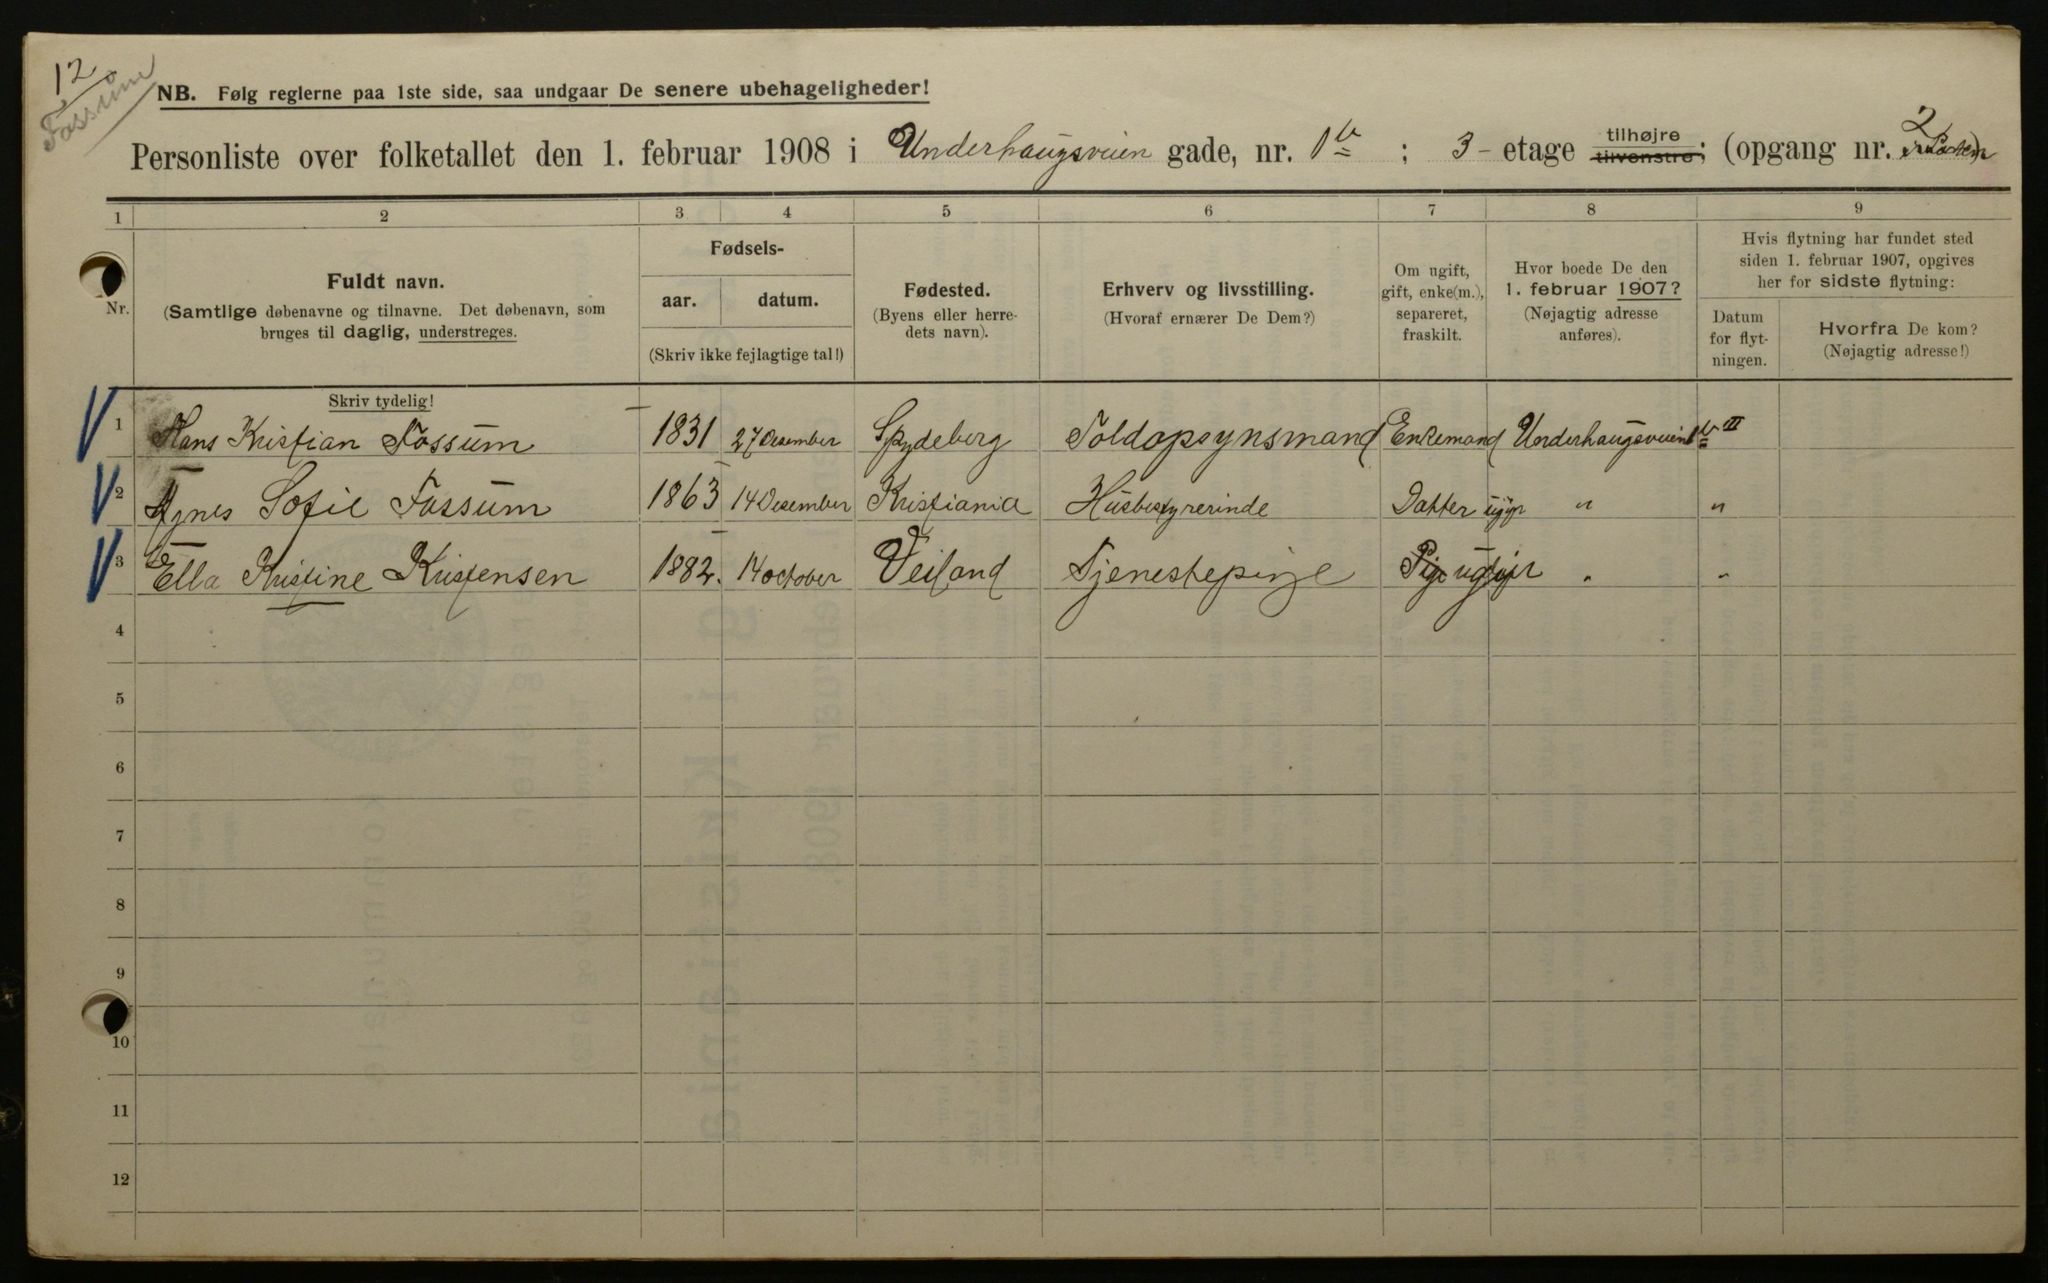 12
Fossum
NB. Følg reglerne paa 1ste side, saa undgaar De senere ubehageligheder!
Personliste over folketallet den 1. februar 1908 i Underhaugsveien gade, nr. 1 b ; 3 - etage tilhøjre tilvenstre; (opgang nr. 2
1 2 3 4 5 6 7 8 9
Nr.
Fuldt navn.
(Samtlige døbenavne og tilnavne. Det døbenavn, som
bruges til daglig, understreges.
Fødsels-
aar. datum.
(Skriv ikke fejlagtige tal!)
Fødested.
(Byens eller herre-
dets navn).
Erhverv og livsstilling.
(Hvoraf ernærer De Dem?)
Om ugift,
gift, enke(m.),
separeret,
fraskilt.
Hvor boede De den
1. februar 1907?
(Nøjagtig adresse
anføres).
Hvis flytning har fundet sted
siden 1. februar 1907, opgives
her for sidste flytning:
Datum
for flyt-
ningen.
Hvorfra De kom?
(Nøjagtig adresse!)
Skriv tydelig!
1 Hans Kristian Fossum 1831 27 Desember Spydeberg Toldopsynsmand Enkemand Underhaugsveien 1 b II
2 Agnes Sofie Fossum 1863 14 Desember Kristiania Husbestyrerinde Datter ugift " "
3 Ella Kristine Kristensen 1882. 14 october Tjenestepige Pige ugift " "
4
5
6
7
8
9
10
11
12